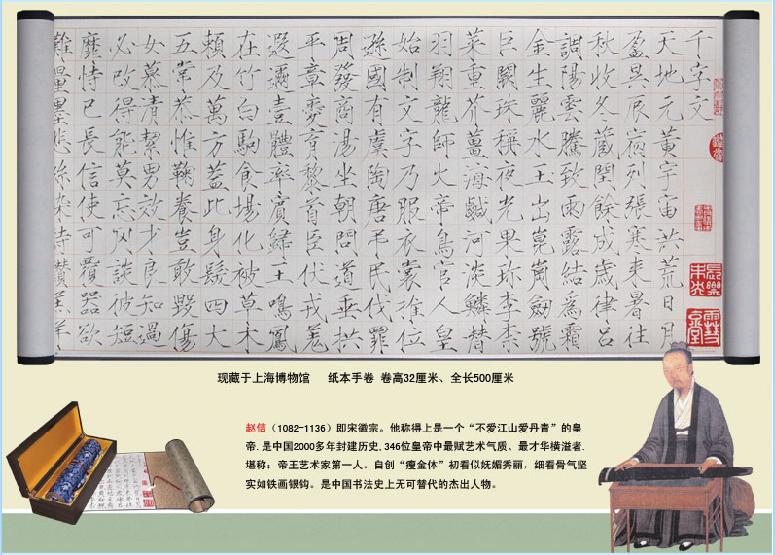 千字文
天地元黃宇宙洪荒日月
盈昃辰宿列張寒来暑往
秋收冬藏閏餘成歲律呂
調陽雲騰致雨露結爲霜
金生麗水玉出崑崗劒號
巨闕珠稱夜光果珎李柰
菜重芥薑海鹹河淡鱗潛
羽翔龍師火帝鳥官人皇
始制文字乃服衣裳推位
遜國有虞陶唐弔民伐罪
周發商湯坐朝問道垂拱
平章愛育黎首臣伏戎羌
遐邇壹體率賓歸王鳴鳳
在竹白駒食場化被草木
賴及萬方蓋此身髮四大
五常恭惟鞠養豈敢毀傷
女慕清潔男效才良知過
必改得能莫忘罔談彼短
靡恃己長信使可覆器欲
難量墨悲絲染詩讃羔羊
现藏于上海博物馆 纸本手卷 卷高32厘米、全长500厘米
赵信（1082-1136）即宋徽宗。他称得上是一个“不爱江山爱丹青”的皇
帝.是中国2000多年封建历史,346位皇帝中最赋艺术气质、最才华横溢者.
堪称：帝王艺术家第一人。自创“瘦金休”初看似妩媚秀丽，细看骨气坚
实如铁画银钩。是中国书法史上无可替代的杰出人物。